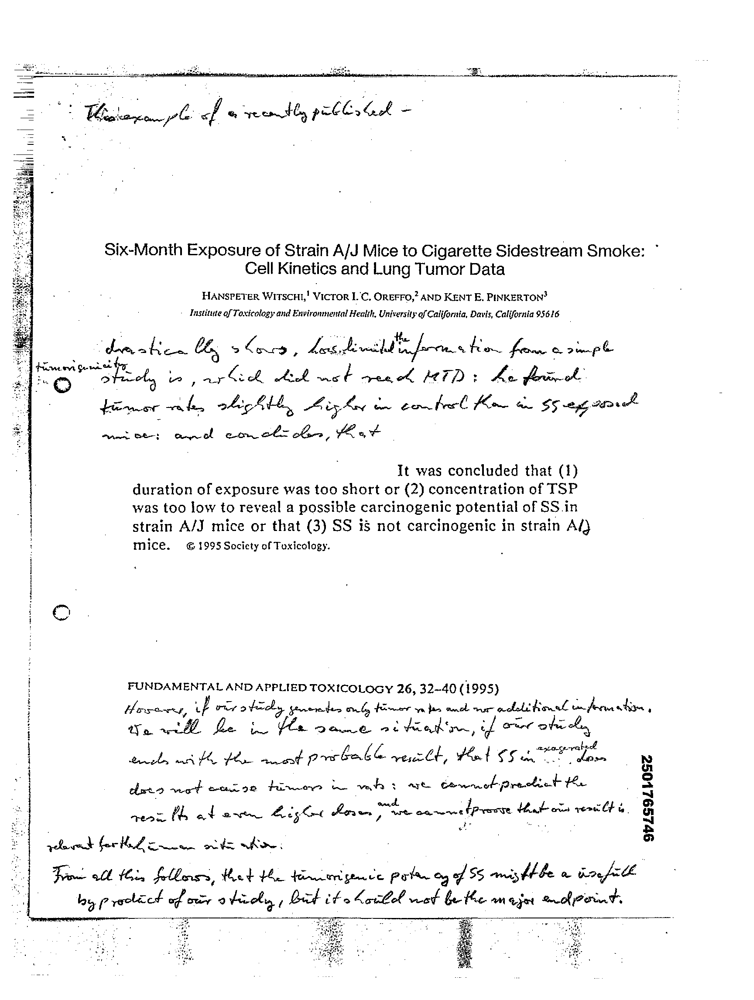 This example of a recently published -
Six-Month Exposure of Strain A/J Mice to Cigarette Sidestream Smoke:
Cell Kinetics and Lung Tumor Data
HANSPETER WITSCHI,¹ VICTOR I. C. OREFFO,² AND KENT E. PINKERTON³
Institute of Toxicology and Environmental Health, University of California, Davis, California 95616
drastically shows, how limited the information from a simple
tumorigenicity
study is, which did not reach MTD: he found
tumor rates slightly higher in control than in SS exposed
mice: and concludes, that
It was concluded that (1)
duration of exposure was too short or (2) concentration of TSP
was too low to reveal a possible carcinogenic potential of SS in
strain A/J mice or that (3) SS is not carcinogenic in strain A/J
mice. © 1995 Society of Toxicology.
FUNDAMENTAL AND APPLIED TOXICOLOGY 26, 32–40 (1995)
However, if our study generates only tumor rates and no additional information,
we will be in the same situation, if our study
ends with the most probable result, that SS in exagerated
does not cause tumors in rats: we cannot predict the
results at even higher doses, and we cannot proove that our result is
relevant for the human situation.
From all this follows, that the tumorigenic potency of SS might be a usefull
byproduct of our study, but it should not be the major endpoint.
2501765746